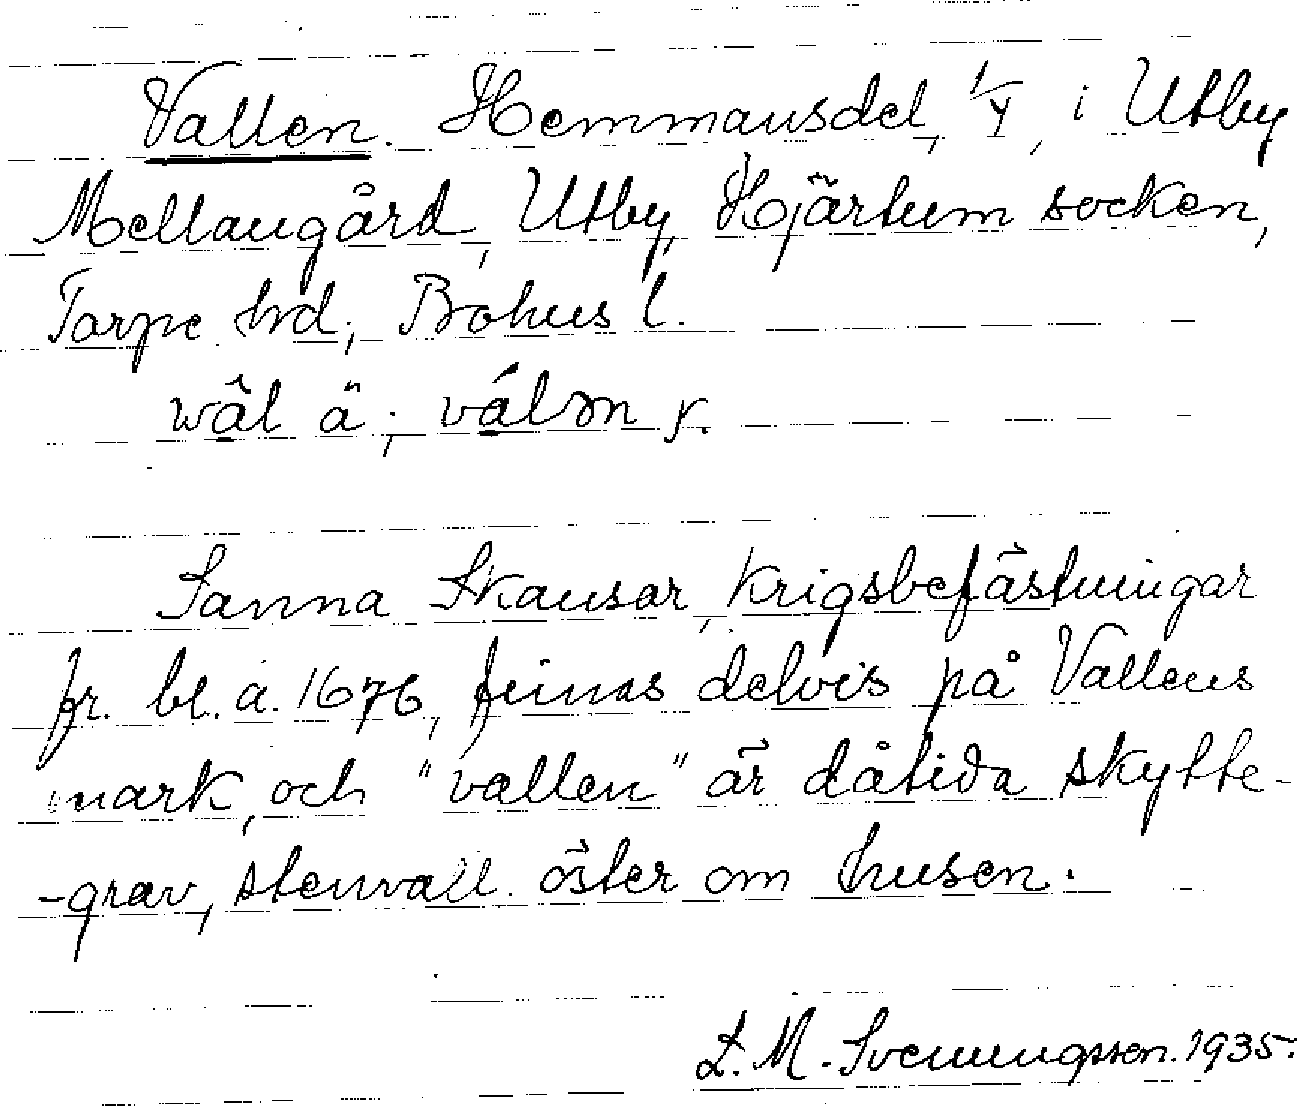 Vallen. Hemmansdel, 1/4, i Utby
Mellangård, Utby, Hjärtum socken,
Torpe hrd, Bohus l.
wâl ä; válon y.
Sanna Skansar, krigsbefästningar
fr. bl. a. 1676, finnas delvis på Vallens
mark, och "vallen" är dåtida skytte-
-grav, stenvall öster om husen.
L. M. Svenungsson. 1935.